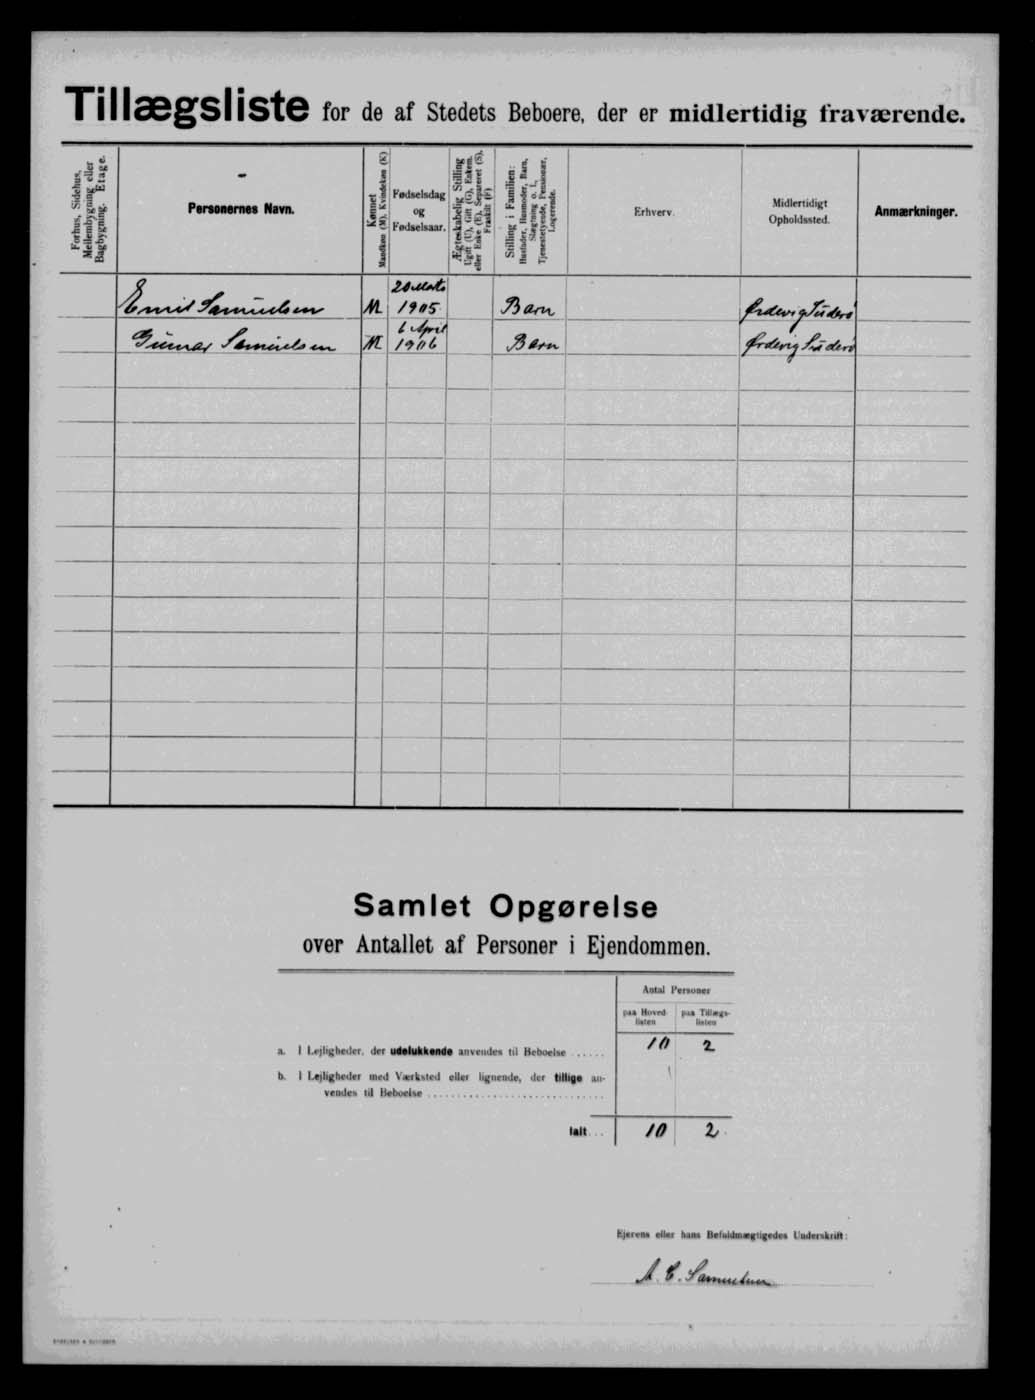 Tillægsliste for de af Stedets Beboere, der er midlertidig fraværende.
Forhus, Sidehus, Mellembygning eller Bagbygning. Etage.
Personernes Navn.
Kønnet Mandkøn (M), Kvindekøn (K)
Fødselsdag og Fødselsaar.
Ægteskabelig Stilling Ugift (U), Gift (G), Enkem. eller Enke (E), Separeret (S), Fraskilt (F)
Stilling i Familien: Husfader, Husmoder, Barn, Slægtning o. l., Tjenestetyende, Pensionær, Logerende.
Erhverv.
Midlertidigt Opholdssted.
Anmærkninger.
Emil Samuelsen M 20 Marts 1905 Barn Ørdevig Suderø
Gunnar Samuelsen M 6 April 1906 Barn Ørdevig Suderø
Samlet Opgørelse
over Antallet af Personer i Ejendommen.
Antal Personer
paa Hoved-listen paa Tillægs-listen
a. I Lejligheder, der udelukkende anvendes til Beboelse ...... 10 2
b. I Lejligheder med Værksted eller lignende, der tillige an-
vendes til Beboelse ..............................
Ialt... 10 2
Ejerens eller hans Befuldmægtigedes Underskrift:
A. C. Samuelsen